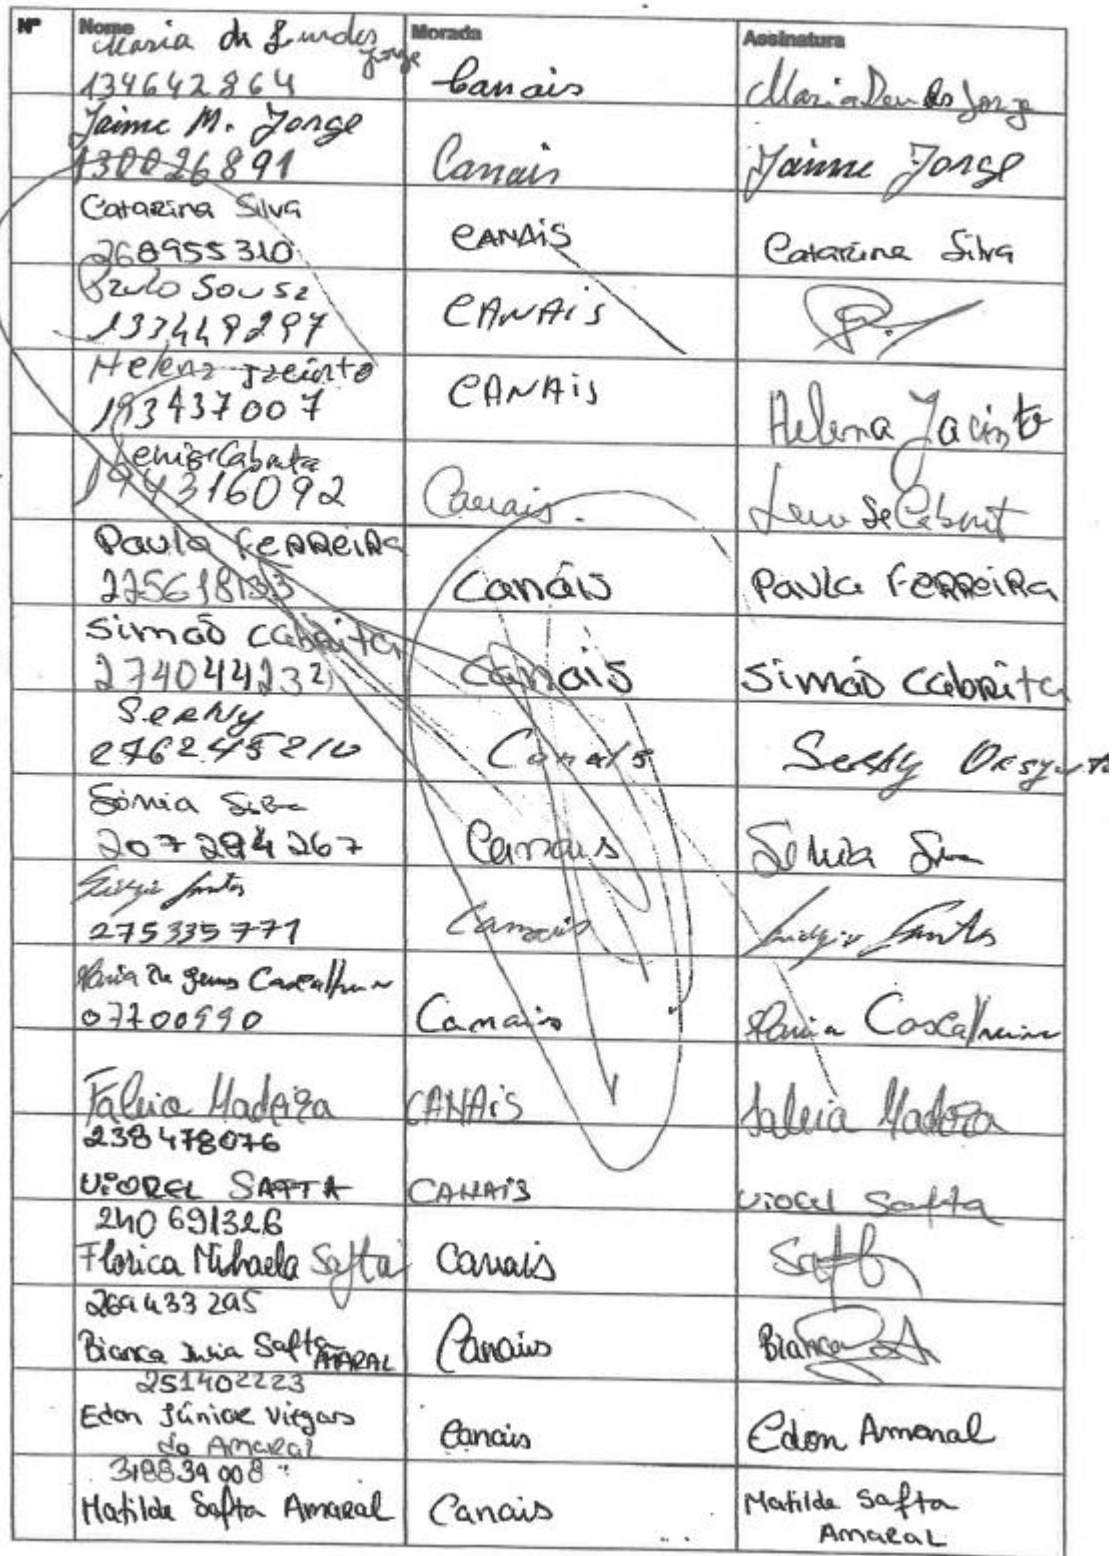 Nº Nome Morada Assinatura
Maria de Lurdes Jorge
134642864 Canais Maria Lourdes Jorge
Jaime M. Jorge
130026891 Canais Jaime Jorge
Catarina Silva
268955310 Canais Catarina Silva
Paulo Sousa
133449297 CANAIS
Helena Jacinto
193437007 CANAIS Helena Jacinto
Cabrita
194316092 Canais.
Paula Ferreira
225618133 Canais Paula Ferreira
Simão Cabrita
274044232 Canais Simão Cabrita
Serhy
276245210 Canais Serhy
Sónia Silva
207284267 Canais Sónia Silva
Santos
275335771 Canais Santos
Maria de Jesus
07700990 Canais Maria
Madeira CANAIS Madeira
238478076
Viorel SAFTA CANAIS Viorel Safta
240691326
Florica Mihaela Safta Canais Safta
269433295
Bianca Safta AMARAL Canais Bianca
251402223
Edon Júnior Viegas
do Amaral Canais Edon Amaral
318839008
Matilde Safta Amaral Canais Matilde Safta
Amaral